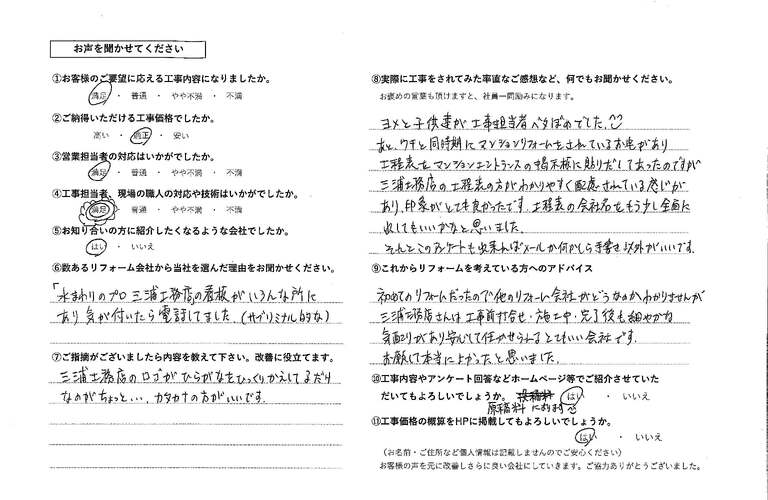 お声を聞かせてください
①お客様のご要望に応える工事内容になりましたか。
満足 ・ 普通 ・ やや不満 ・ 不満
②ご納得いただける工事価格でしたか。
高い ・ 適正 ・ 安い
③営業担当者の対応はいかがでしたか。
満足 ・ 普通 ・ やや不満 ・ 不満
④工事担当者、現場の職人の対応や技術はいかがでしたか。
満足 ・ 普通 ・ やや不満 ・ 不満
⑤お知り合いの方に紹介したくなるような会社でしたか。
はい ・ いいえ
⑥数あるリフォーム会社から当社を選んだ理由をお聞かせください。
「水まわりのプロ 三浦工務店」の看板がいろんな所に
あり 気が付いたら電話してました。(サブリミナル的な)
⑦ご指摘がございましたら内容を教えて下さい。改善に役立てます。
三浦工務店のロゴがひらがなをひっくりかえしてるだり
なのがちょっと・・・、カタカナの方がいいです。
⑧実際に工事をされてみた率直なご感想など、何でもお聞かせください。
お褒めの言葉も頂けますと、社員一同励みになります。
ヨメと子供達が工事担当者ベタぼめでした。
あと、ウチと同時期にマンションリフォームをされているお宅があり
工程表をマンションエントランスの掲示板に貼りだしてあったのですが
三浦工務店の工程表の方がわかりやすく配慮されている感じが
あり、印象がとても良かったです。工程表の会社名をもう少し全面に
出してもいいかなと思いました。
それとこのアンケートも出来ればメールか何かしら手書き以外がいいです。
⑨これからリフォームを考えている方へのアドバイス
初めてのリフォームだったので他のリフォーム会社がどうなのかわかりませんが
三浦工務店さんは工事前打合せ・施工中・完了後も細やかな
気配りがあり安心して任せられるとてもいい会社です。
お願いして本当によかったと思いました。
⑩工事内容やアンケート回答などホームページ等でご紹介させていた
だいてもよろしいでしょうか。 投稿料 はい ・ いいえ
原稿料 になります
⑪工事価格の概算をHPに掲載してもよろしいでしょうか。
はい ・ いいえ
（お名前・ご住所など個人情報は記載しませんのでご安心ください）
お客様の声を元に改善しさらに良い会社にしていきます。ご協力ありがとうございました。